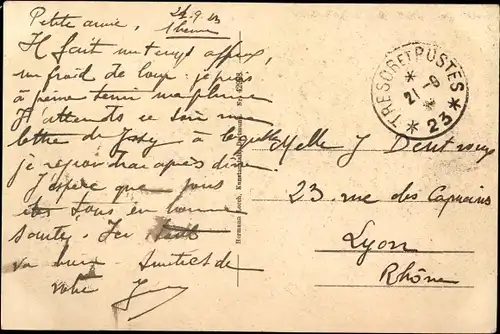 Petite amie, 21-9-23
1 heure
Il fait un temps affreux,
un froid de loup. je puis
à peine tenir ma plume
J'attends ce soir une
lettre de à laquelle
je répondrai après diner
J'espère que tous
êtes tous en bonne
santé. Ici tout
va bien. Amitiés de
votre
Hermann Lorch, Kunstanstalt
TRESOR ET POSTES
21-9
* 23 *
Melle J
23 rue des Capucins
Lyon
Rhône